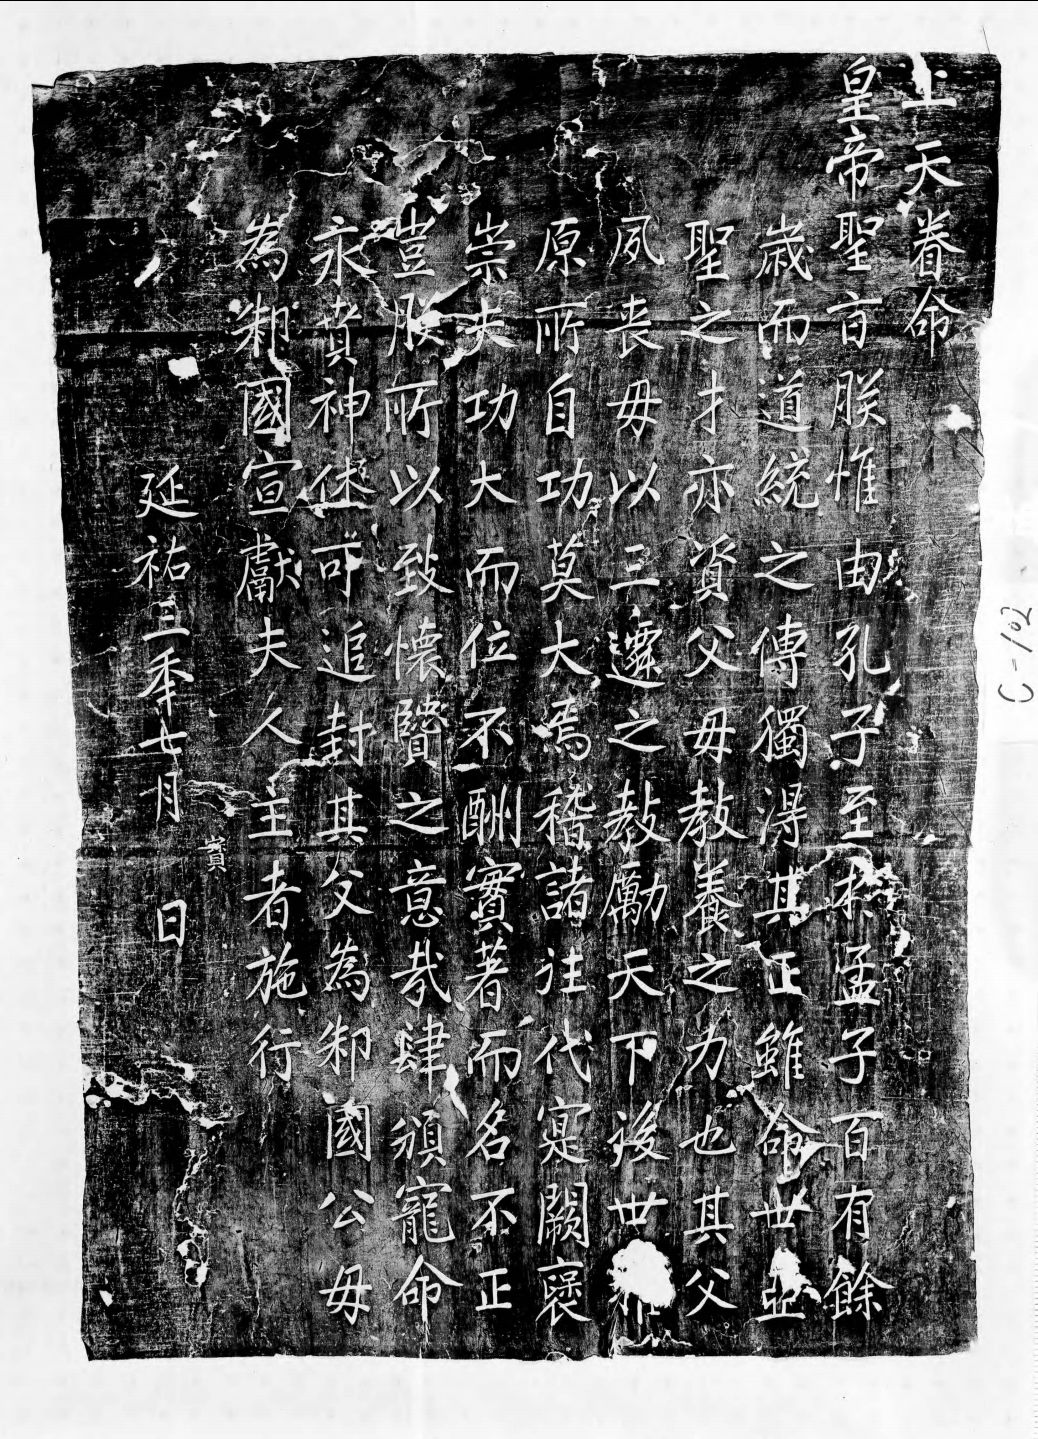 上天眷命
皇帝聖旨朕惟由孔子至于孟子百有餘
歲而道統之傳獨淂其正雖命世亞
聖之才亦資父母教養之力也其父
夙喪母以三遷之教勵天下後世
原所自功莫大焉稽諸往代寔闕褒
崇夫功大而位不酬實著而名不正
豈朕所以致懷賢之意哉肆頒寵命
永賁神休可追封其父為邾國公母
為邾國宣獻夫人主者施行
延祐三秊七月 日
寶
C-102